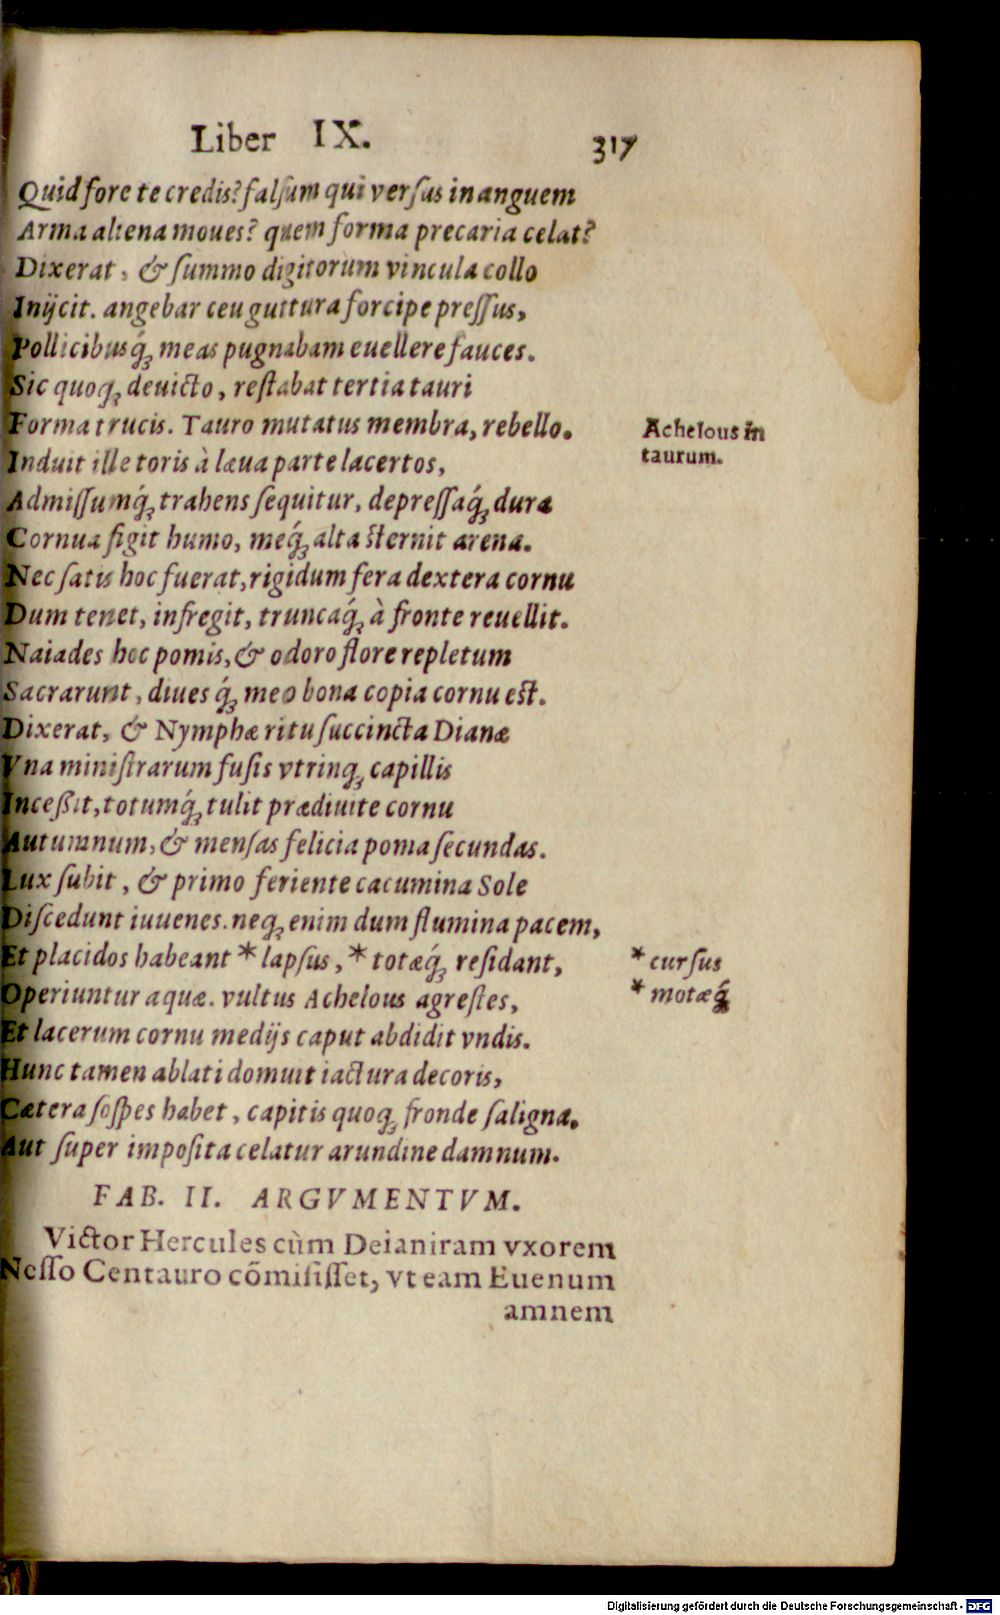 Liber IX. 317
Quid fore te credis? falsum qui versus in anguem
Arma aliena moues? quem forma precaria celat?
Dixerat, & summo digitorum vincula collo
Inijcit. angebar ceu guttura forcipe pressus,
Pollicibusq́ꝫ meas pugnabam euellere fauces.
Sic quoqꝫ deuicto, restabat tertia tauri
Forma trucis. Tauro mutatus membra, rebello.
Achelous in
taurum.
Induit ille toris à læua parte lacertos,
Admissumq́ꝫ trahens sequitur, depressaq́ꝫ dura
Cornua figit humo, meq́ꝫ alta sternit arena.
Nec satis hoc fuerat, rigidum fera dextera cornu
Dum tenet, infregit, truncaq́ꝫ à fronte reuellit.
Naiades hoc pomis, & odoro flore repletum
Sacrarunt, diues q́ꝫ meo bona copia cornu est.
Dixerat, & Nymphæ ritu succincta Dianæ
Vna ministrarum fusis vtrinqꝫ capillis
Inceßit, totumq́ꝫ tulit prædiuite cornu
Autumnum, & mensas felicia poma secundas.
Lux subit, & primo feriente cacumina Sole
Discedunt iuuenes. neqꝫ enim dum flumina pacem,
Et placidos habeant * lapsus, * totæq́ꝫ residant,
* cursus
* motæq́ꝫ
Operiuntur aquæ. vultus Achelous agrestes,
Et lacerum cornu medijs caput abdidit vndis.
Hunc tamen ablati domuit iactura decoris,
Cætera sospes habet, capitis quoqꝫ fronde saligna.
Aut super imposita celatur arundine damnum.
FAB. II. ARGVMENTVM.
Victor Hercules cùm Deianiram vxorem
Nesso Centauro cõmisisset, vt eam Euenum
amnem
Digitalisierung gefördert durch die Deutsche Forschungsgemeinschaft - DFG